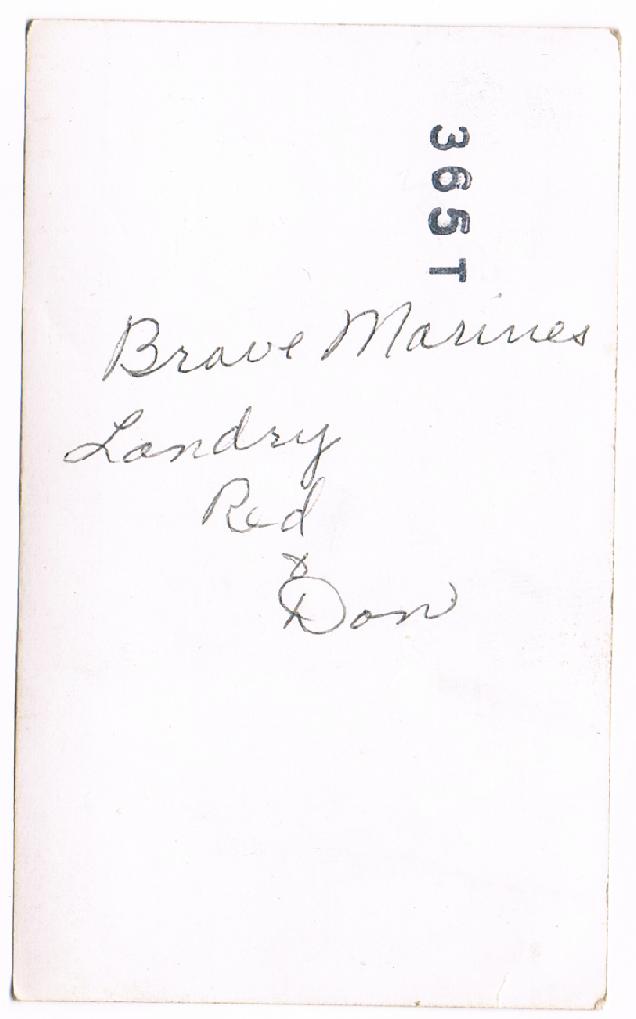 365T
Brave Marines
Landry
Red
&
Don